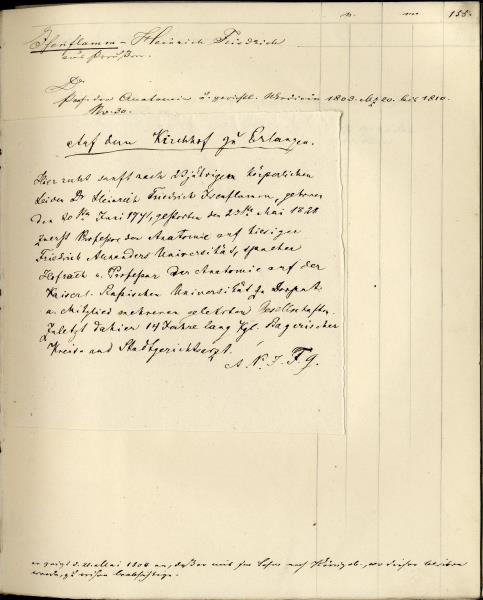 155.
Isenflamm – Heinrich Friedrich
aus
Dr
Prof. der Anatomie u. gerichtl. Medicin 1803 20. bis 1810.
No. 30.
Auf dem Kirchhof zu Erlangen.
Hier ruht sanft nach 23jährigen körperlichen
Leiden Dr Heinrich Friedrich Isenflamm, geboren
den 20ten Juni 1771, gestorben den 23ten Mai 1828
zuerst Professor der Anatomie auf hiesiger
Friedrich Alexanders Universität, spaeter
Hofrath u. Professor der Anatomie auf der
Kaiserl. Russischen Universität zu Dorpat
u. Mitglied mehrerer gelehrten Gesellschaften.
Zuletzt dahier 14 Jahre lang Kgl. Bayerischer
Kreis- und Stadtgerichtsarzt.
er zeigt d. Mai 1804 an, daß er mit nach, wo dieser bleiben
werde, zu reisen beabsichtige.